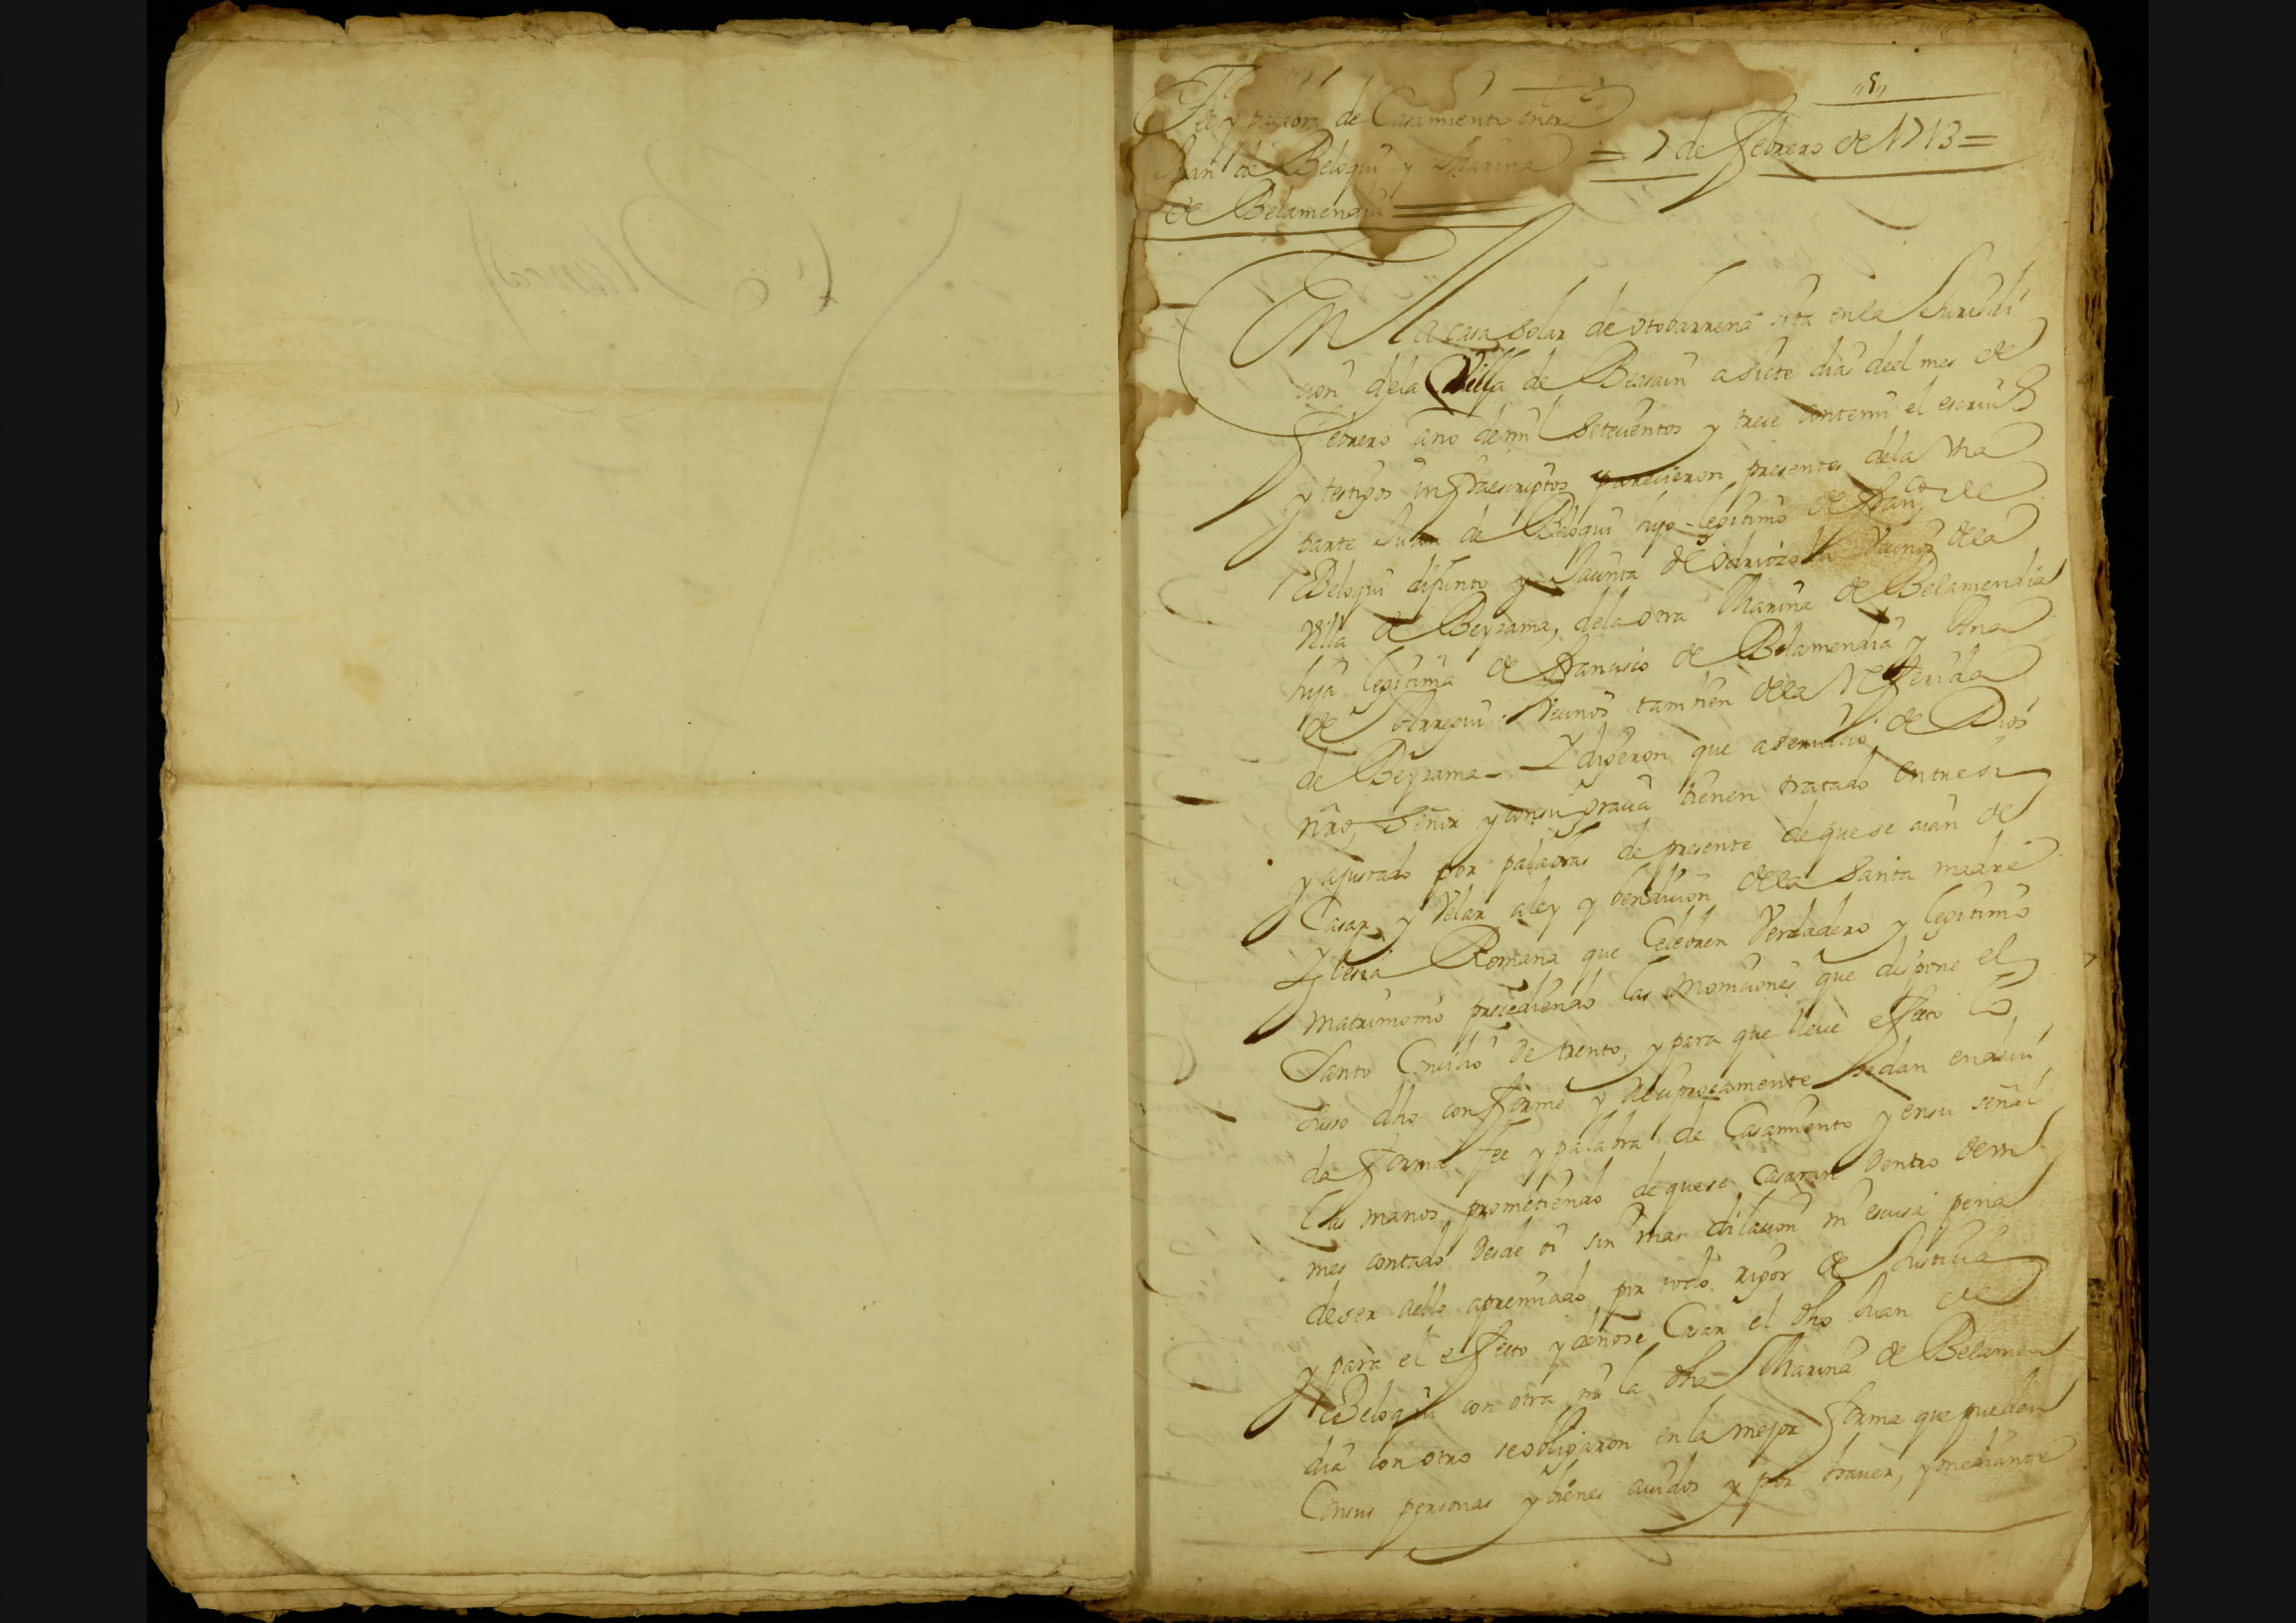 "5"
Fee y palabra de Casamiento entre
Juan de Beloqui y Marina
de Belamendia
= 7 de Febrero de 1713 =
En la casa solar de otobarrena sita en la Jurisdi
cion de la Villa de Beasain a siete dias del mes de
Febrero año de mil Setecientos y trece ante mi el escriu
y testigos infraescriptos parecieron presentes de la Vna
parte Juan de Beloqui hijo legitimo de Franco de
Beloqui difunto y Jacinta de odriozola Vecinos de la
Villa de Beyzama, de la otra Marina de Belamendia
hija legitima de Francisco de Belamendia y Ana
de Vecinos tambien de la Referida
de Beyzama - Y dijeron que a seruicio de Dios
nro Señor y con su gracia tienen tratado entre si
y ajustado por palabras de presente de que se aian de
Casar y Velar a ley y bendicion de la Santa madre
Yglesia Romana que Celebren Verdadero y legitimo
matrimonio precediendo las moniciones que dispone el
Santo Concilio de trento, y para que lleue effecto lo
susso dho conforme y Reciprocamente se dan en deui
da forma fee y palabra de Casamiento y en su señal
las manos prometiendo de que se Casaran dentro de vn
mes contado desde oi sin mas dilacion ni escusa pena
de ser a ello apremiado por todo rigor de Justicia
y para el effecto y de nose Casar el dho Juan de
Beloqui con otra ni la dha Marina de Belamen
dia con otro se obligaron en la mejor forma que puedan
Con sus personas y bienes auidos y por hauer, y mediante